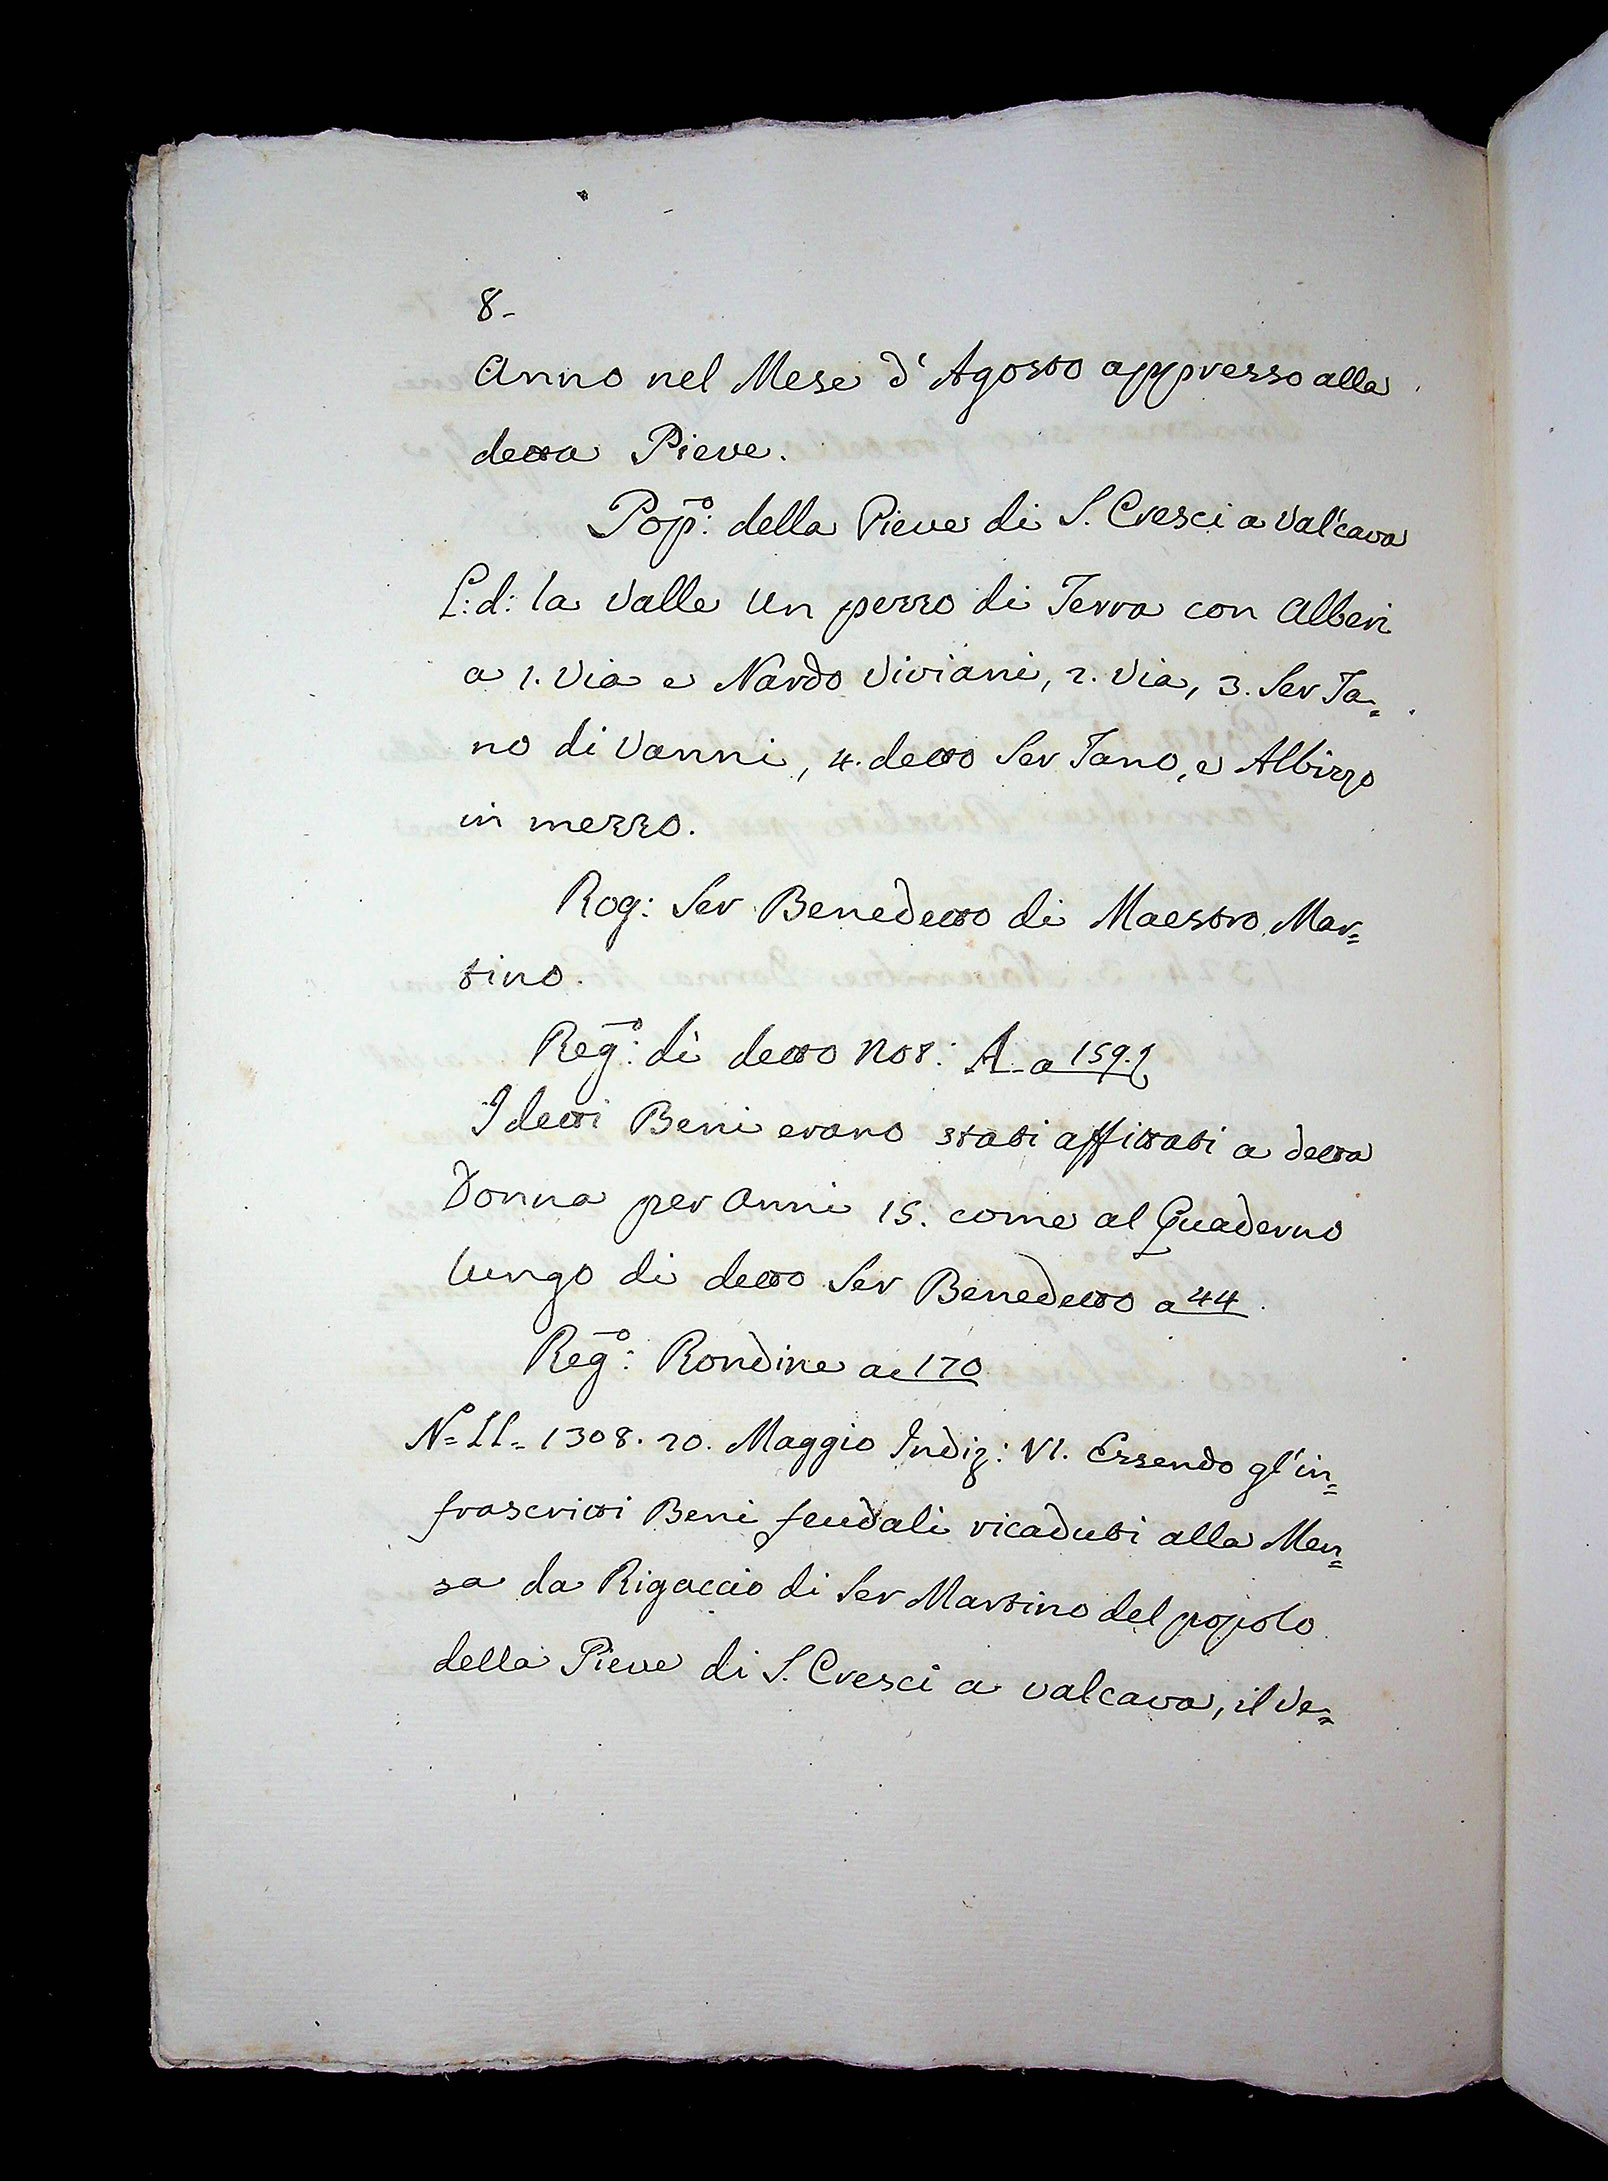 8-
Anno nel Mese d'Agosto appresso alla
detta Pieve.
Pop:º della Pieve di S. Cresci a Valcava
L:d: la Valle Un pezzo di Terra con Alberi
a 1. Via e Nardo Viviani, 2. Via, 3. Ser Ta=
no di Vanni, 4. detto Ser Tano, e Albizzo
in mezzo.
Rog: Ser Benedetto di Maestro Mar=
tino.
Reg:º di detto Not: A. a 159.
I detti Beni erano stati affittati a detta
Donna per Anni 15. come al Quaderno
lungo di detto Ser Benedetto a 44.
Reg:º Rondine a 170
Nº= 11= 1308. 20. Maggio Indiz: VI. Essendo gl'in=
frascritti Beni feudali ricaduti alla Men=
sa da Rigaccio di Ser Martino del popolo
della Pieve di S. Cresci a Valcava, il Ve=